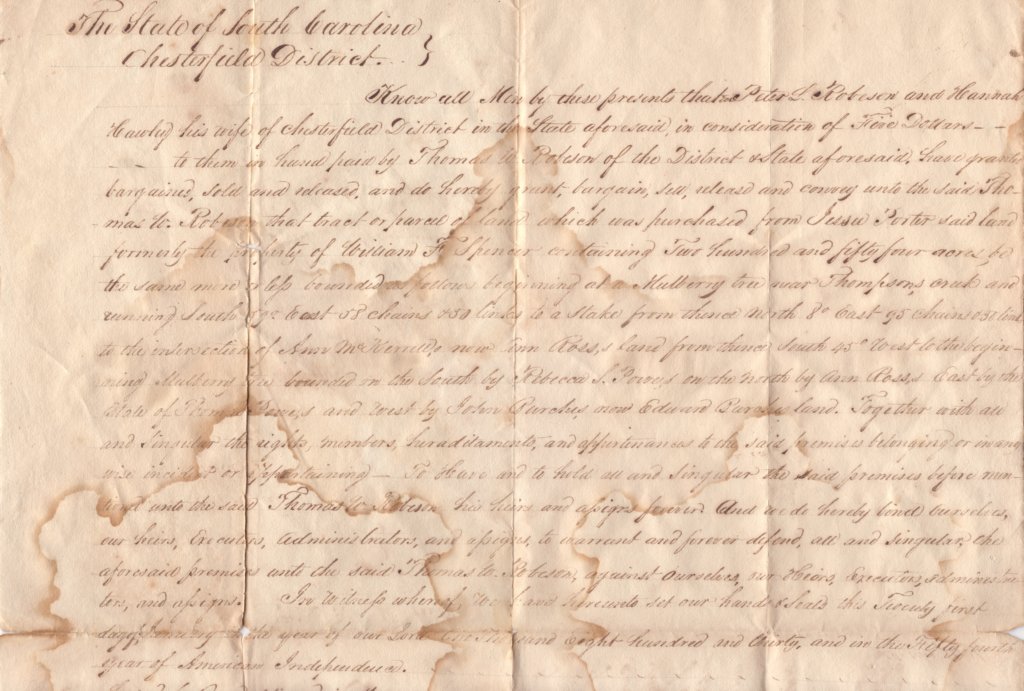 The State of South Carolina
Chesterfield District. }
Know all Men by these presents that we Peter L. Robeson and Hannah
Hawley his wife of Chesterfield District in the State aforesaid, in consideration of Five Dollars - -
- to them in hand paid by Thomas W. Robeson of the District & State aforesaid, have granted
bargained, sold and released, and do hereby grant, bargain, sell, release and convey unto the said Tho-
mas W. Robeson that tract or parcel of land which was purchased from Jesse Porter said land
formerly the property of William F. Spencer containing Two hundred and fifty four acres be
the same more or less bounded as follows beginning at a Mulberry tree near Thompsons creek and
running South East 58 chains & 50 links to a Stake from thence North 8° East 95 chains & 50 links
to the intersection of Ann McKerrels now Ann Ross,s land from thence South 45° West to the begin-
ning Mulberry tree bounded on the South by Rebecca S. Powes on the North by Ann Ross,s East by the
of Thomas Powe,s and West by John Burches now Edward Burch land. Together with all
and Singular the rights, members, heraditaments, and appurtenances to the said premises belonging or in any
wise incident or appertaining — To Have and to hold all and Singular the said premises before men-
tioned unto the said Thomas W. Robeson his heirs and assigns forever And we do hereby bind ourselves,
our heirs, Executors, Administrators, and assigns, to warrant and forever defend, all and singular, the
aforesaid premises unto the said Thomas W. Robeson, against ourselves, our Heirs, Executors, administra-
tors, and assigns. In Witness whereof, We have hereunto set our hands & Seals this Twenty first
day of January in the year of our Lord One Thousand Eight hundred and thirty, and in the Fifty fourth
year of American Independence.